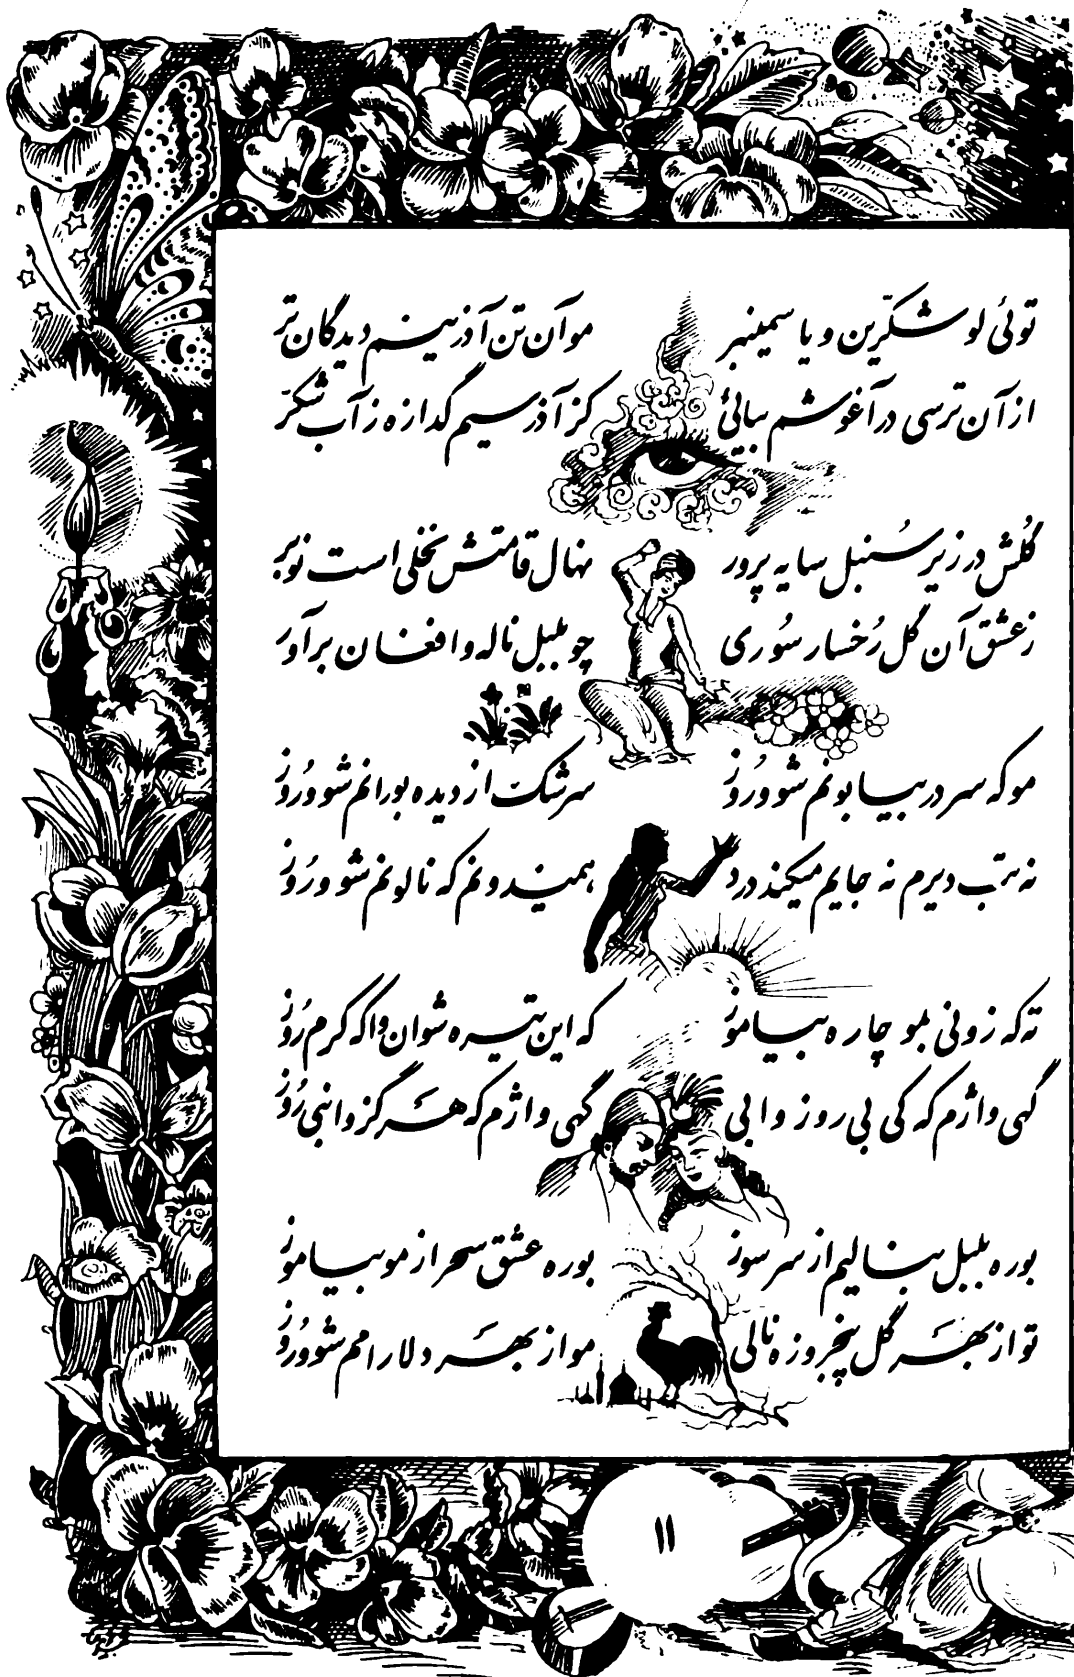 توئی لو شکّرین و یا سمینبر مو آن تن آذرینم دیدگان تر
از آن ترسی در آغوشم بیائی کز آذر سیم گدازه ز آب شکّر
گُلش در زیر سُنبل سایه پرور نهال قامتش نخلی است نوبر
ز عشق آن گل رُخسار سُوری چو بلبل ناله و افغان برآور
مو که سر در بیابونم شو و رُوز سرشکت از دیده بورانم شو و رُوز
نه تب دیرم نه جایم میکند درد همیندونم که نالونم شو و رُوز
ته که زونی بلمو چاره بیاموز که این تیره شوان واکه کرم رُوز
گهی واژم که کی بی روز وابی گهی واژم که هَرگز وابنی رُوز
بوره بلبل بنالیم از سر سوز بوره عشق سحر از مو بیاموز
تو از بهَر گل پنجروزه نالی مو از بهَر دلارامم شو و رُوز
۱۱